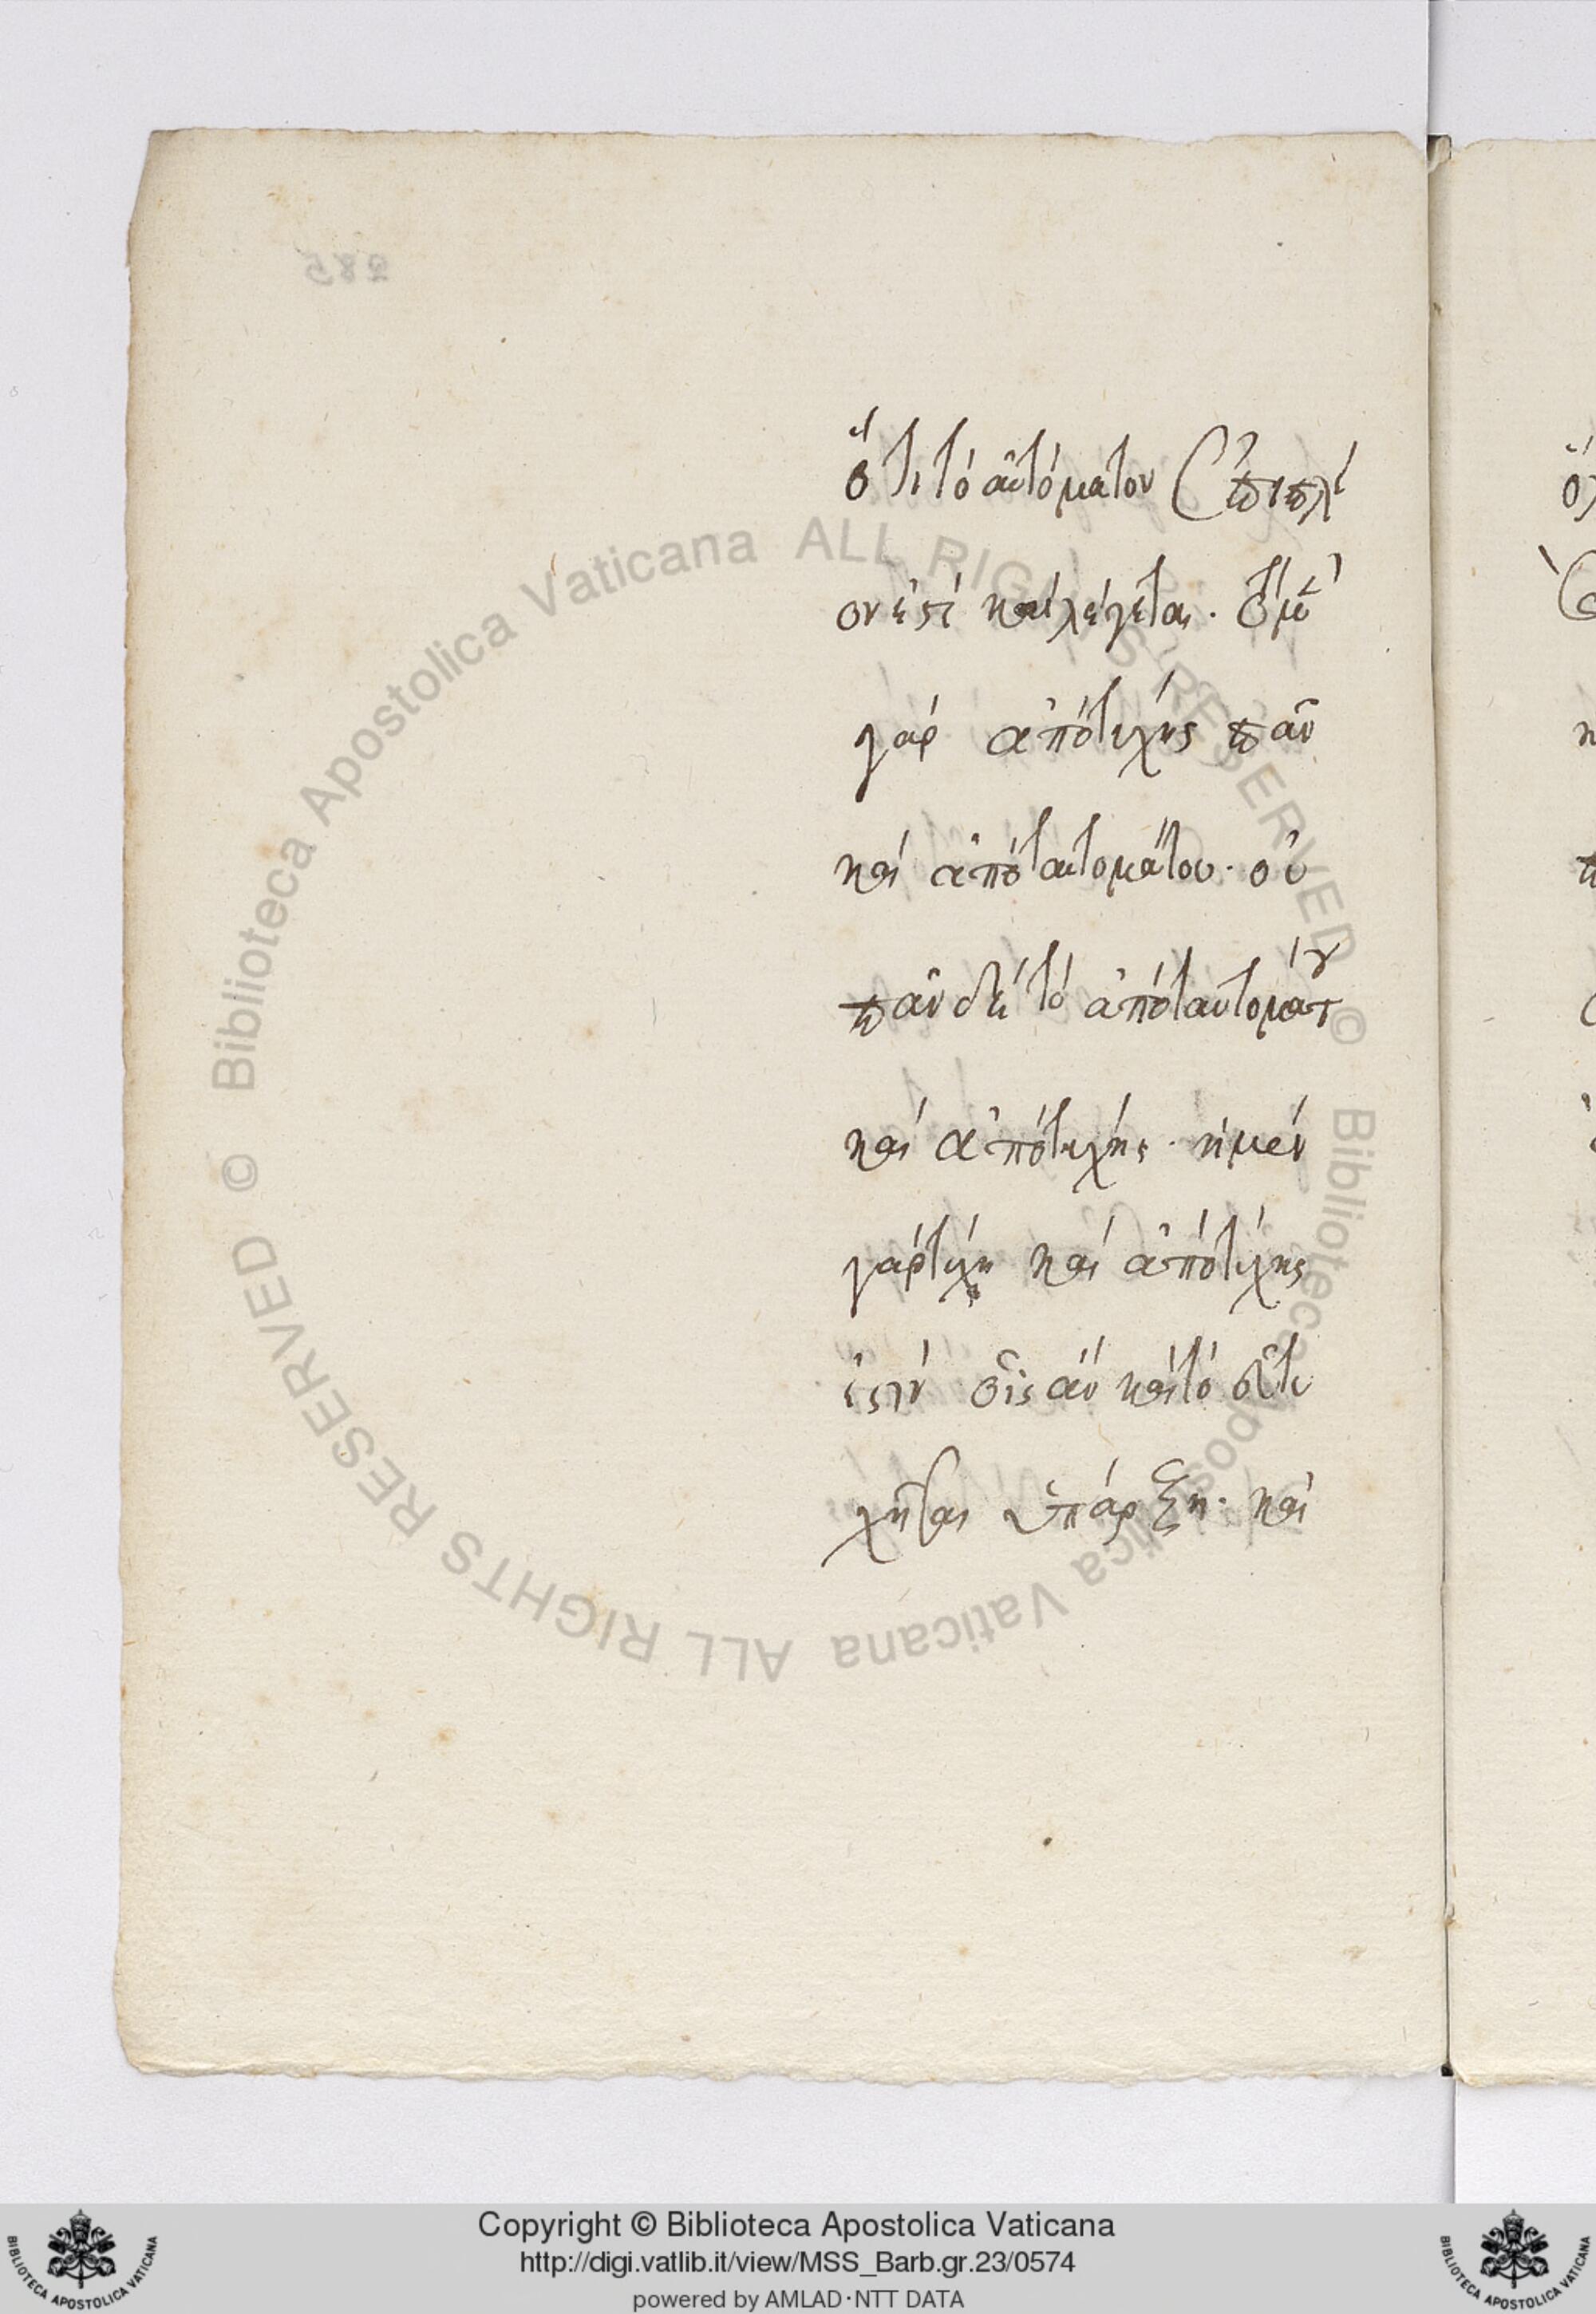 ὅτι τὸ αὐτόματον ἐπιπλέ
ον ἐστί καὶ λέγεται. τὸ μὲν
γὰρ ἀπὸ τύχης πᾶν
καὶ ἀπὸ ταυτομάτου. οὐ
πᾶν δὲ τὸ ἀπὸ ταυτομάτου
καὶ ἀπὸ τύχης. ἡ μὲν
γὰρ τύχη καὶ ἀπὸ τύχης
ἐστὶν οἷς ἂν καὶ τὸ εὐτυ
χῆσαι ὑπάρξῃ. καὶ
585
© Biblioteca Apostolica Vaticana ALL RIGHTS RESERVED © Biblioteca Apostolica Vaticana ALL RIGHTS RESERVED
Copyright © Biblioteca Apostolica Vaticana
http://digi.vatlib.it/view/MSS_Barb.gr.23/0574
powered by AMLAD·NTT DATA
BIBLIOTECA APOSTOLICA VATICANA
BIBLIOTECA APOSTOLICA VATICANA